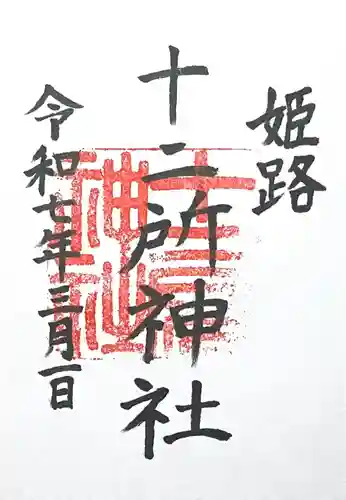 姫路
十二所神社
令和七年三月一日